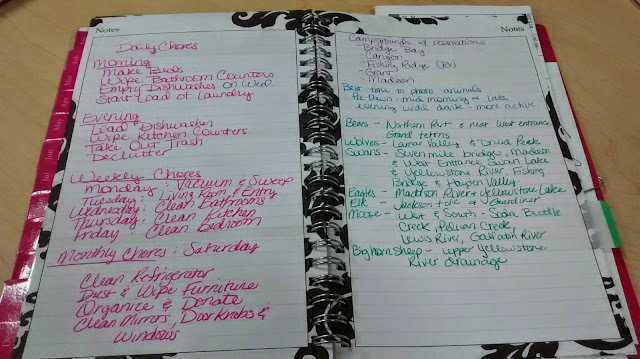 Notes
Daily Chores
Morning
Make Beds
Wipe Bathroom Counters
Empty Dishwashes on Wed
Start Load of Laundry
Evening
Load Dishwasher
Wipe Kitchen Counters
Take Out Trash
Declutter
Weekly Chores
Monday: Vacuum & Sweep
Tuesday: Living Room & Entry
Wednesday: Clean Bathrooms
Thursday: Clean Kitchen
Friday: Clean Bedroom
Monthly Chores: Saturday
Clean Refrigerator
Dust & Wipe Furniture
Organize & Donate
Clean Mirrors, Door Knobs &
Windows
Notes
Campgrounds w/ reservations
- Bridge Bay
- Canyon
- Fishing Bridge (RV)
- Grant
- Madison
Best time to photo animals
Pre Dawn - mid morning + late
evening until dark - more active
Bears - Northern Part & near west entrance
Grand tetons
Wolves - Lamar Valley & Druid Peak
Swans - Seven mile bridge, Madison
& West Entrance Swan Lake
& Yellowstone River, Fishing
Bridge & Hayden Valley
Eagles - Madison River & Yellowstone Lake
Elk - Jackson hole & Gardiner
Moose - West & South - Soda Buttle
Creek, Pelican Creek,
Lewis River, Gallatin River
Big Horn Sheep - upper Yellowstone
River drainage